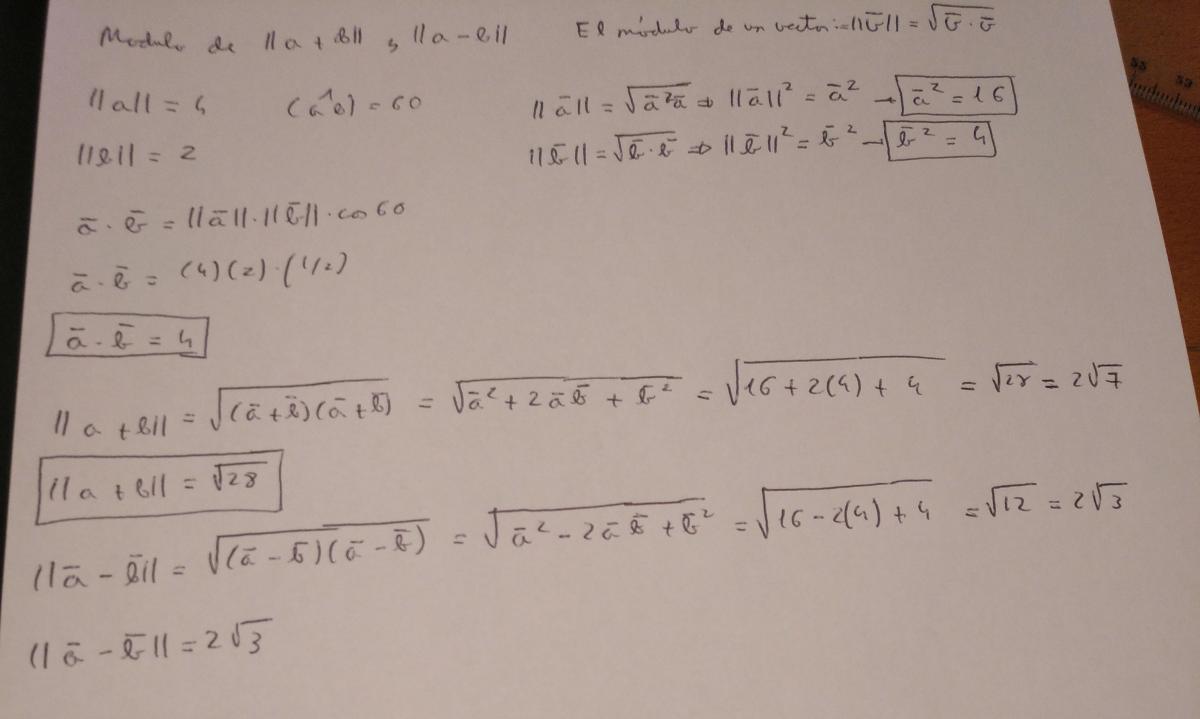 Modulo de ||a + b|| y ||a - b||
El módulo de un vector:= ||v̄|| = √(v̄ · v̄)
||a|| = 4 (a^b) = 60
||ā|| = √(ā·ā) ⇒ ||ā||² = ā² → ā² = 16
||b|| = 2
||b̄|| = √(b̄ · b̄) ⇒ ||b̄||² = b̄² → b̄² = 4
ā · b̄ = ||ā|| · ||b̄|| · cos 60
ā · b̄ = (4)(2) · (1/2)
ā · b̄ = 4
||a + b|| = √((ā + b̄)(ā + b̄)) = √(ā² + 2āb̄ + b̄²) = √(16 + 2(4) + 4) = √28 = 2√7
||a + b|| = √28
||ā - b̄|| = √((ā - b̄)(ā - b̄)) = √(ā² - 2āb̄ + b̄²) = √(16 - 2(4) + 4) = √12 = 2√3
||ā - b̄|| = 2√3
55 59